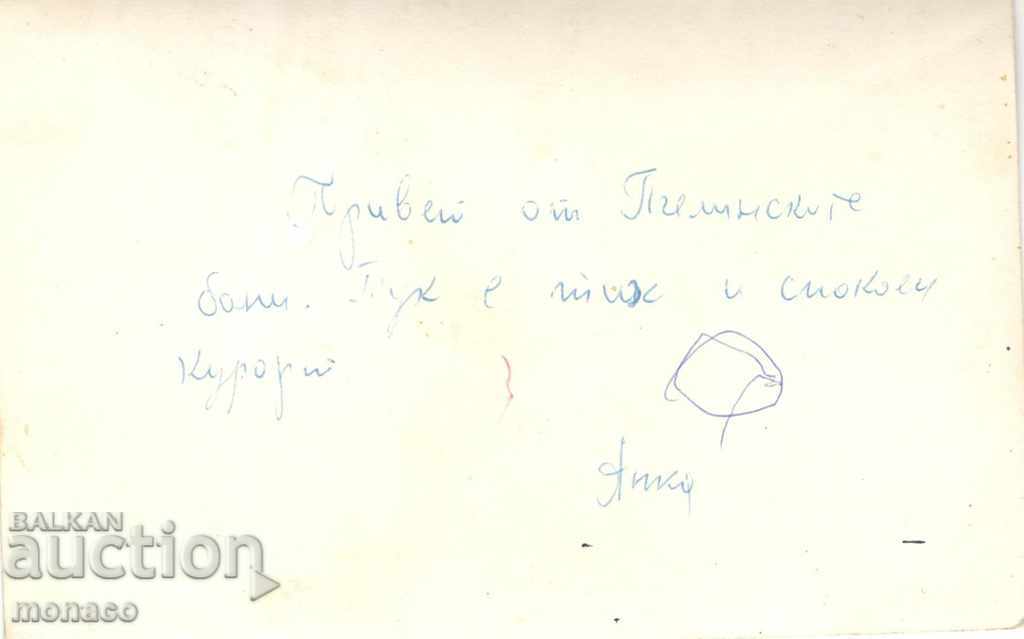 Привет от Пчелинските
бани. Тук е тих и спокоен
курорт
Янка
BALKAN
auction
monaco